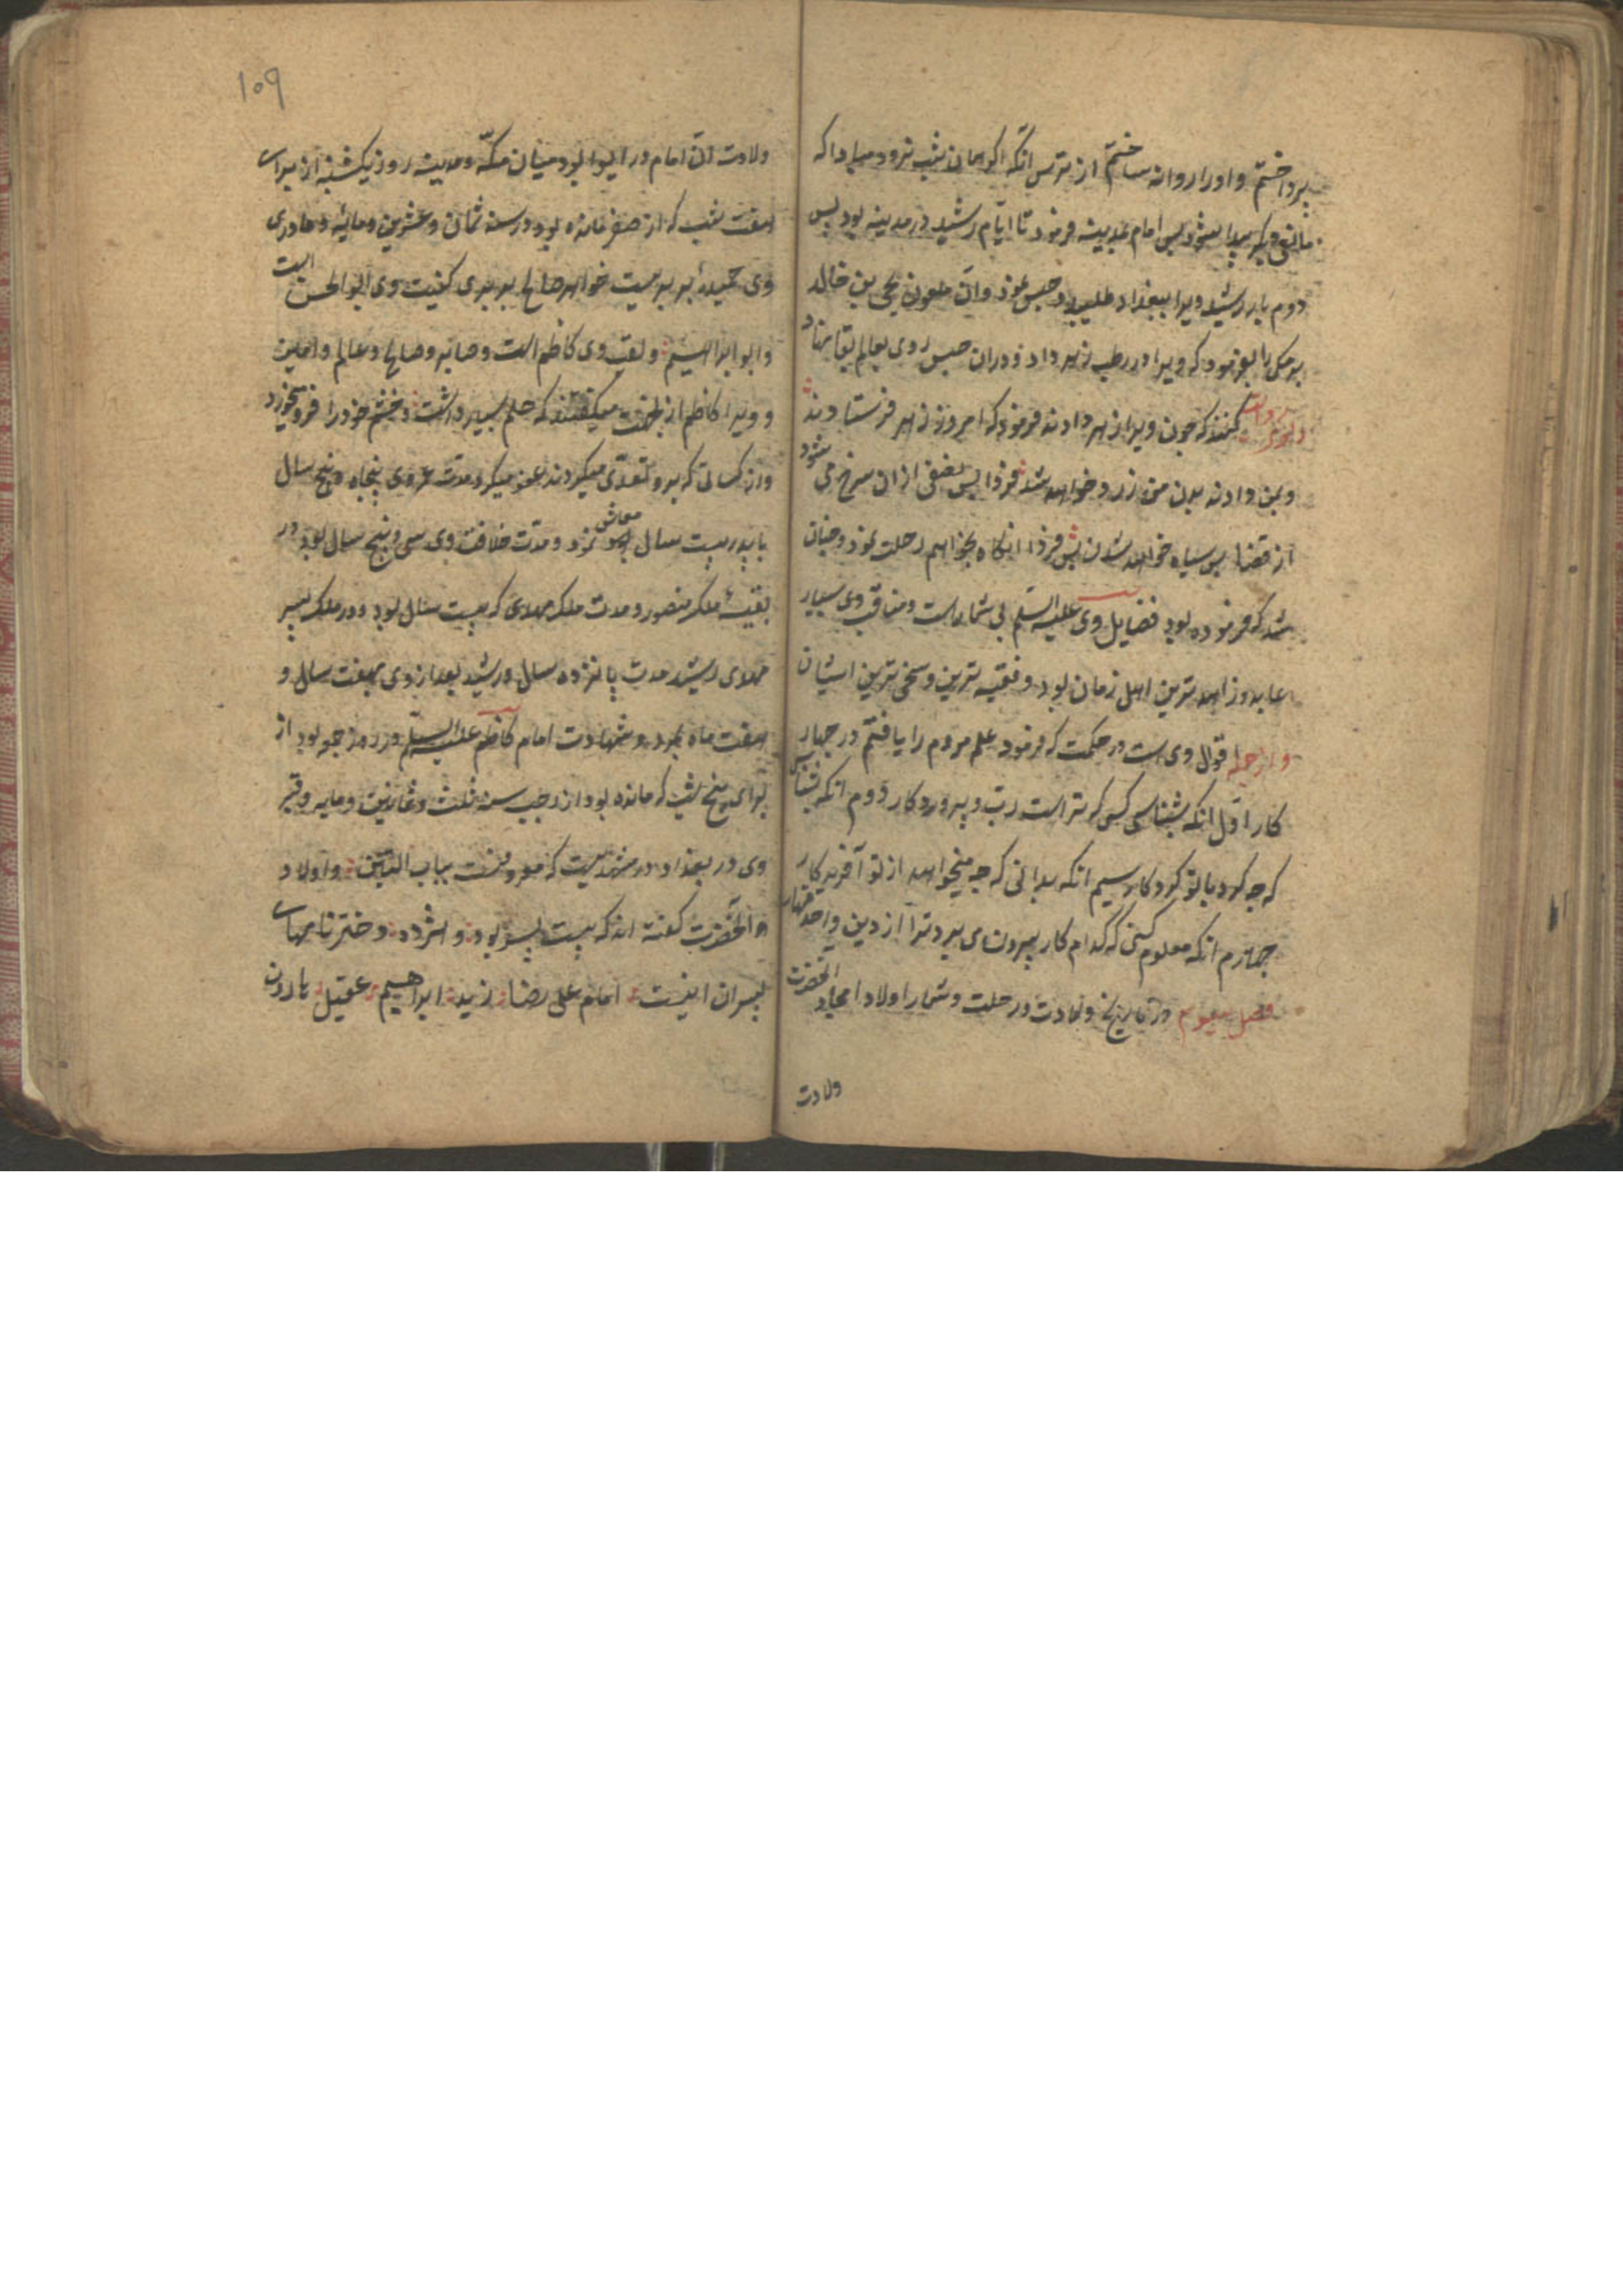 پرداختم و اورا روانه ساختم از ترس انکه اکر همان شب نرود مبادا که
مانعی دیکر پیدا شود پس امام بمدینه فرمود تا ایام رشید در مدینه بود پس
دوم بار رشید ویرا ببغداد طلبید و حبس نمود وان ملعون یحیی بن خالد
برمکی را بفرمود که ویرا در رطب زهر داد و دران حبس روی بعالم بقا نهاد
کنند که چون ویرا زهر دادند فرمود که امروز زهر فرستادند
و بمن دادند بدن من زرد خواهد شد فردا پس نصفی ازان سرخ می شود
از قضا پس سیاه خواهد شدن پس فردا انکاه بخواهم رحلت نمود و چنان
شد که فرموده بود فضایل وی علیه السلم بی شمارست و مناقب وی بسیار
عابد و زاهد ترین اهل زمان بود و فقیه ترین و سخی ترین ایشان
و از جمله اقوال وی است در حکمت که فرمود علم مردم را یافتم در چهار
کار اول انکه بشناسی کسی که تراست رب و پروردکار دوم انکه بشناسی
که چه کرد با تو کردکار سیم انکه بدانی که چه میخواهد از تو آفریدکار
چهارم انکه معلوم کنی که کدام کار بیرون می برد ترا از دین
فصل سیوم در تاریخ ولادت و رحلت و شمار اولاد امجاد انحضرت
ولادت
۱۰۹
ولادت ان امام در ابوا بود میان مکه و مدینه روز یکشنبه از برای
هفت شب که از صفر مانده بود در سنه ثمان و عشرین و مایه و مادر
وی حمیده بربریست خواهر صالح بربری کنیت وی ابو الحسن است
و ابو ابراهیم و لقب وی کاظم است و صابر و صالح و عالم و امین
و ویرا کاظم ازبجهت میکفتند که حلم بسیار داشت و خشم خود را فرو میخورد
و از کسانی که برو تعدی میکردند عفو میکرد مدت عمر وی پنجاه و پنج سال
با پدر بیست سال معاش نمود و مدت خلافت وی سی و پنج سال بود در
بقیه ملک منصور و مدت ملک مهدی که بیست سال بود و در ملک پسر
مهدی رشید مدت پانزده سال و رشید بعد از وی هفت سال و
هفت ماه بمرد و شهادت امام کاظم علیه السلم در روز جمعه بود از
برای پنج شب که مانده بود از رجب سنه ثلث و ثمانین و مایه و قبر
وی در بغداد در مشهدیست که معروفست بباب التین و اولاد
انحضرت کفته اند که بیست پسر بود و هژده دختر نامهای
پسران اینست امام علی رضا زید ابراهیم عقیل هارون